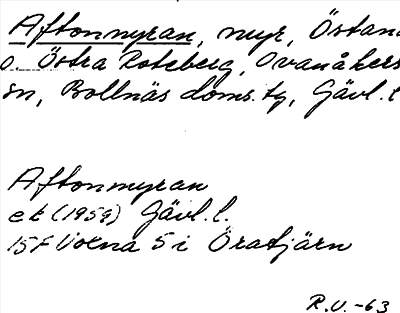 Aftonmyran, myr, Östan
o. Östra Roteberg, Ovanåkers
sn, Bollnäs doms.tg, Gävl.l
Aftonmyran
ek (1959) Gävl.l.
15F Voxna 5 i Öratjärn
R.U. -63